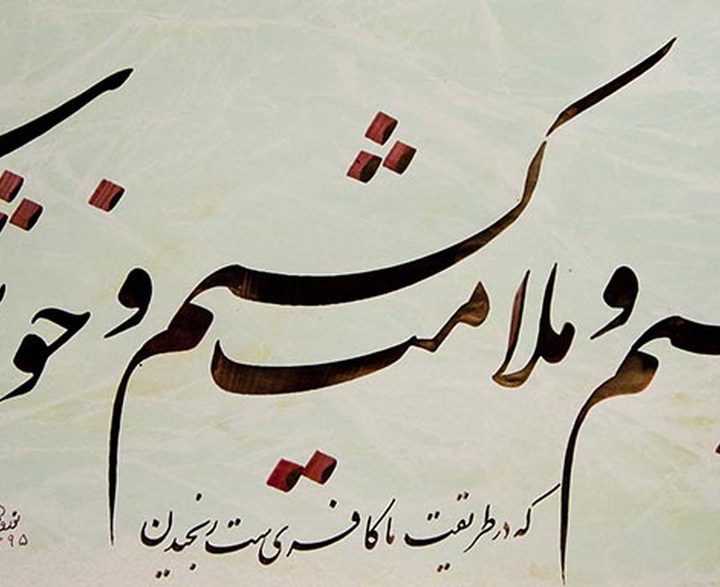 و ملامت کشیم و
که در طریقت ما کافری ست رنجیدن
۹۵